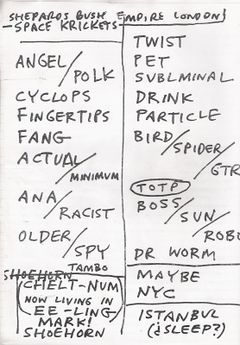 SHEPARDS BUSH EMPIRE LONDON}
-SPACE KRICKETS-
ANGEL/POLK
CYCLOPS
FINGERTIPS
FANG
ACTUAL/MINIMUM
ANA/RACIST
OLDER/SPY
TAMBO
SHOEHORN
(CHELT-NUM
NOW LIVING IN
EE-LING)
MARK!
SHOEHORN
TWIST
PET
SUBLMINAL
DRINK
PARTICLE
BIRD/SPIDER/GTR
TOTP
BOSS/SUN/ROBO
DR WORM
MAYBE
NYC
ISTANBUL
(¿SLEEP?)